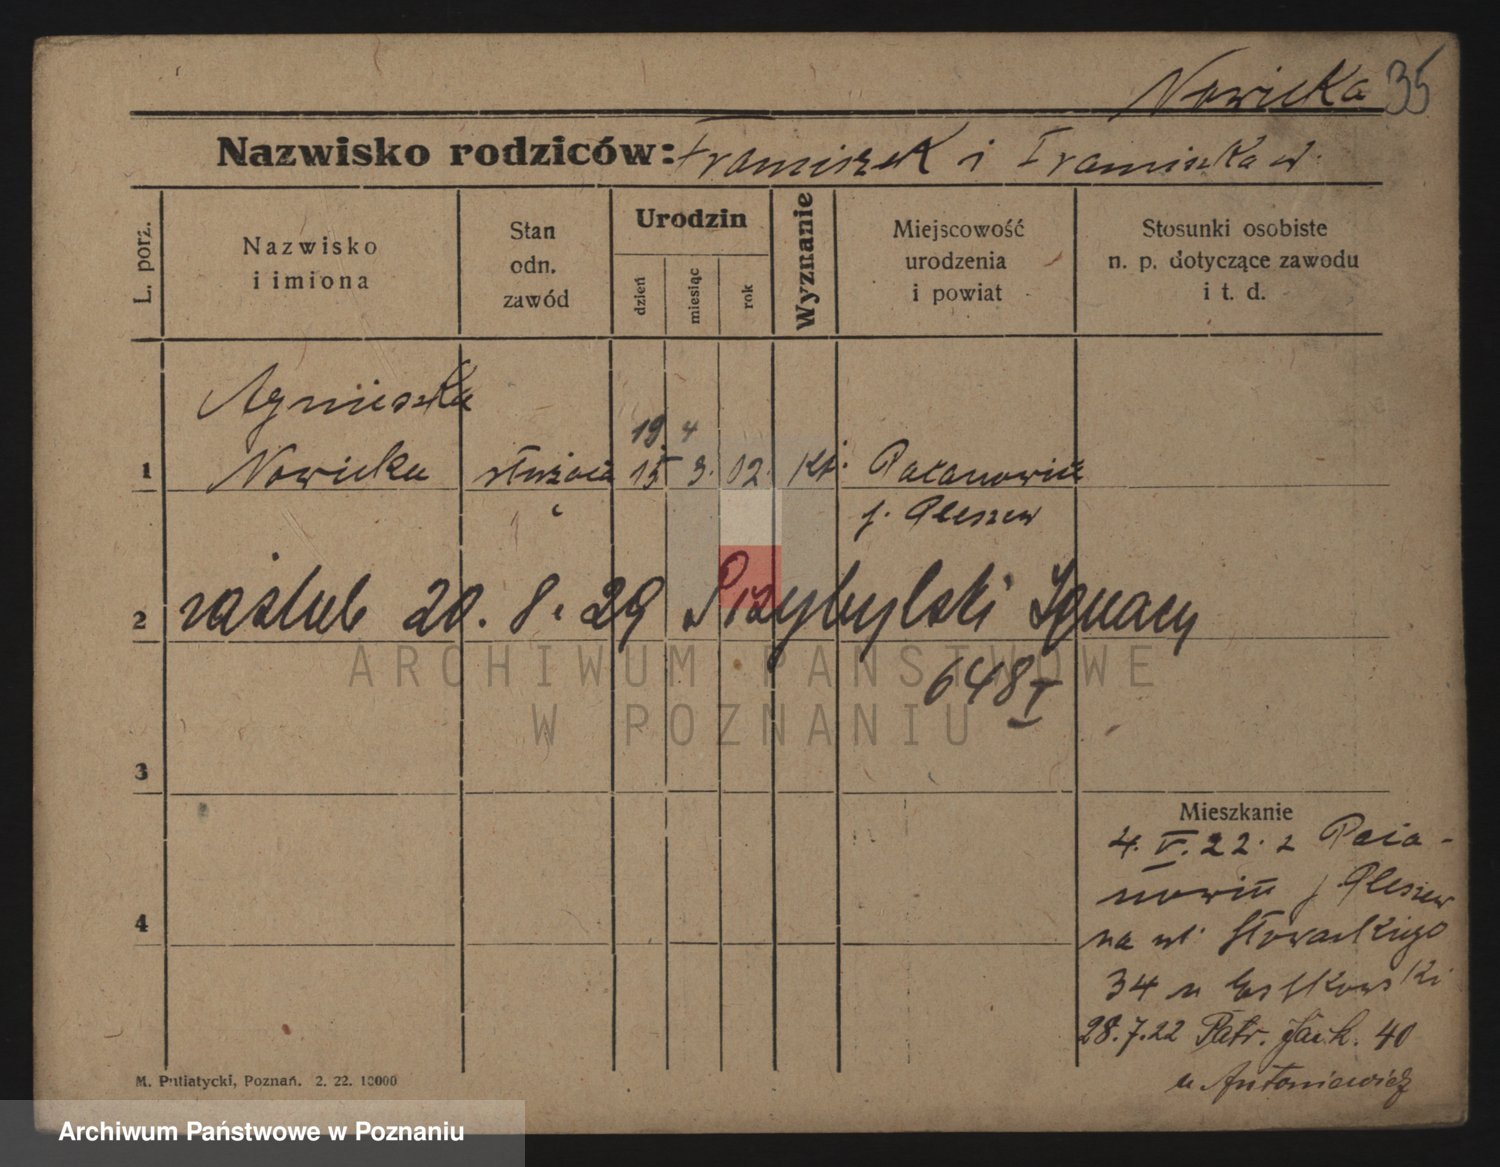 Nowicka 35
Nazwisko rodziców: Franciszek i Franciszka w.
L. porz.
Nazwisko
i imiona
Stan
odn.
zawód
Urodzin
dzień
miesiąc
rok
Wyznanie
Miejscowość
urodzenia
i powiat
Stosunki osobiste
n. p. dotyczące zawodu
i t. d.
Agnieszka
19 4
1 Nowicka służąca 15 3. 02. kt. Pacanowice
p. Pleszew
2 zaślub 20. 8. 29 Przybylski Ignacy
648 I
ARCHIWUM PAŃSTWOWE
W POZNANIU
3
Mieszkanie
4. V. 22. z Paca-
nowic p Pleszew
4
na ul. Słowackiego
34 u
28.7.22 Patr. Jack. 40
u Antoniewicz
M. Putiatycki, Poznań. 2. 22. 10000
Archiwum Państwowe w Poznaniu